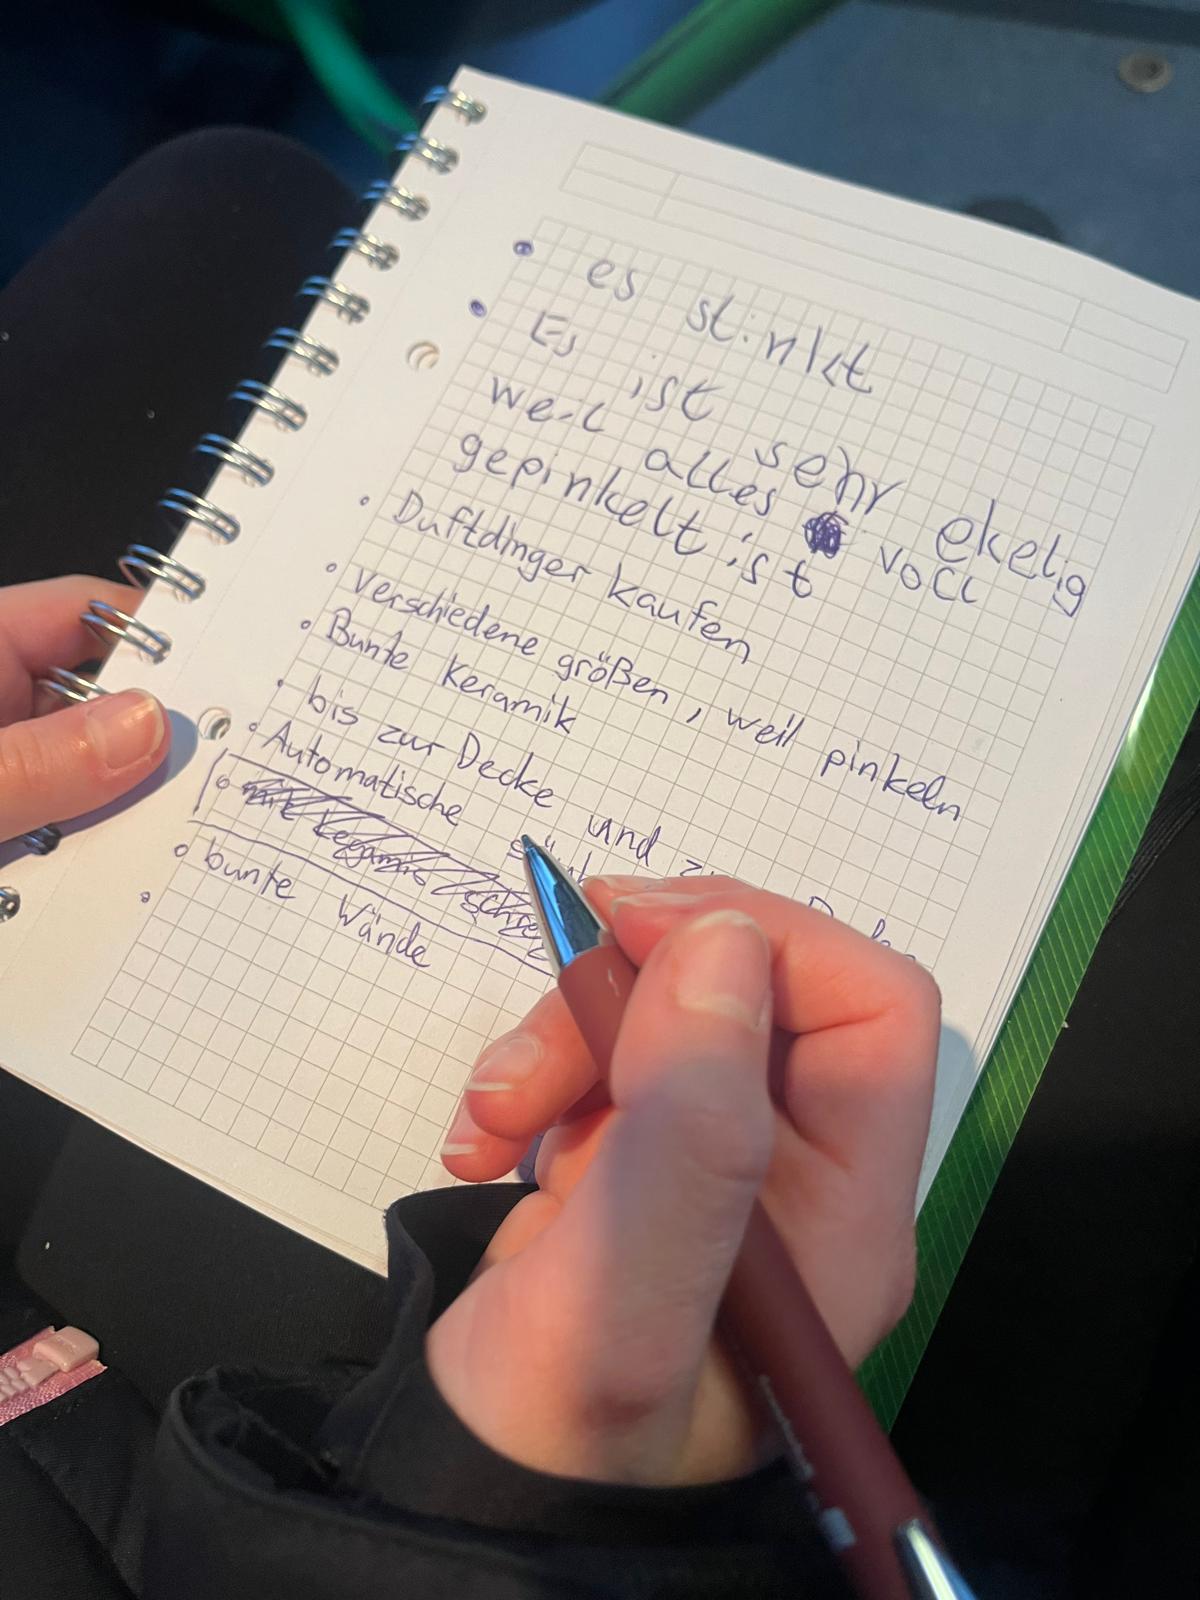 • es stinkt
• Es ist sehr ekelig
weil alles voll
gepinkelt ist
• Duftdinger kaufen
• verschiedene größen, weil pinkeln
• Bunte Keramik
• bis zur Decke und
• Automatische
• bunte Wände